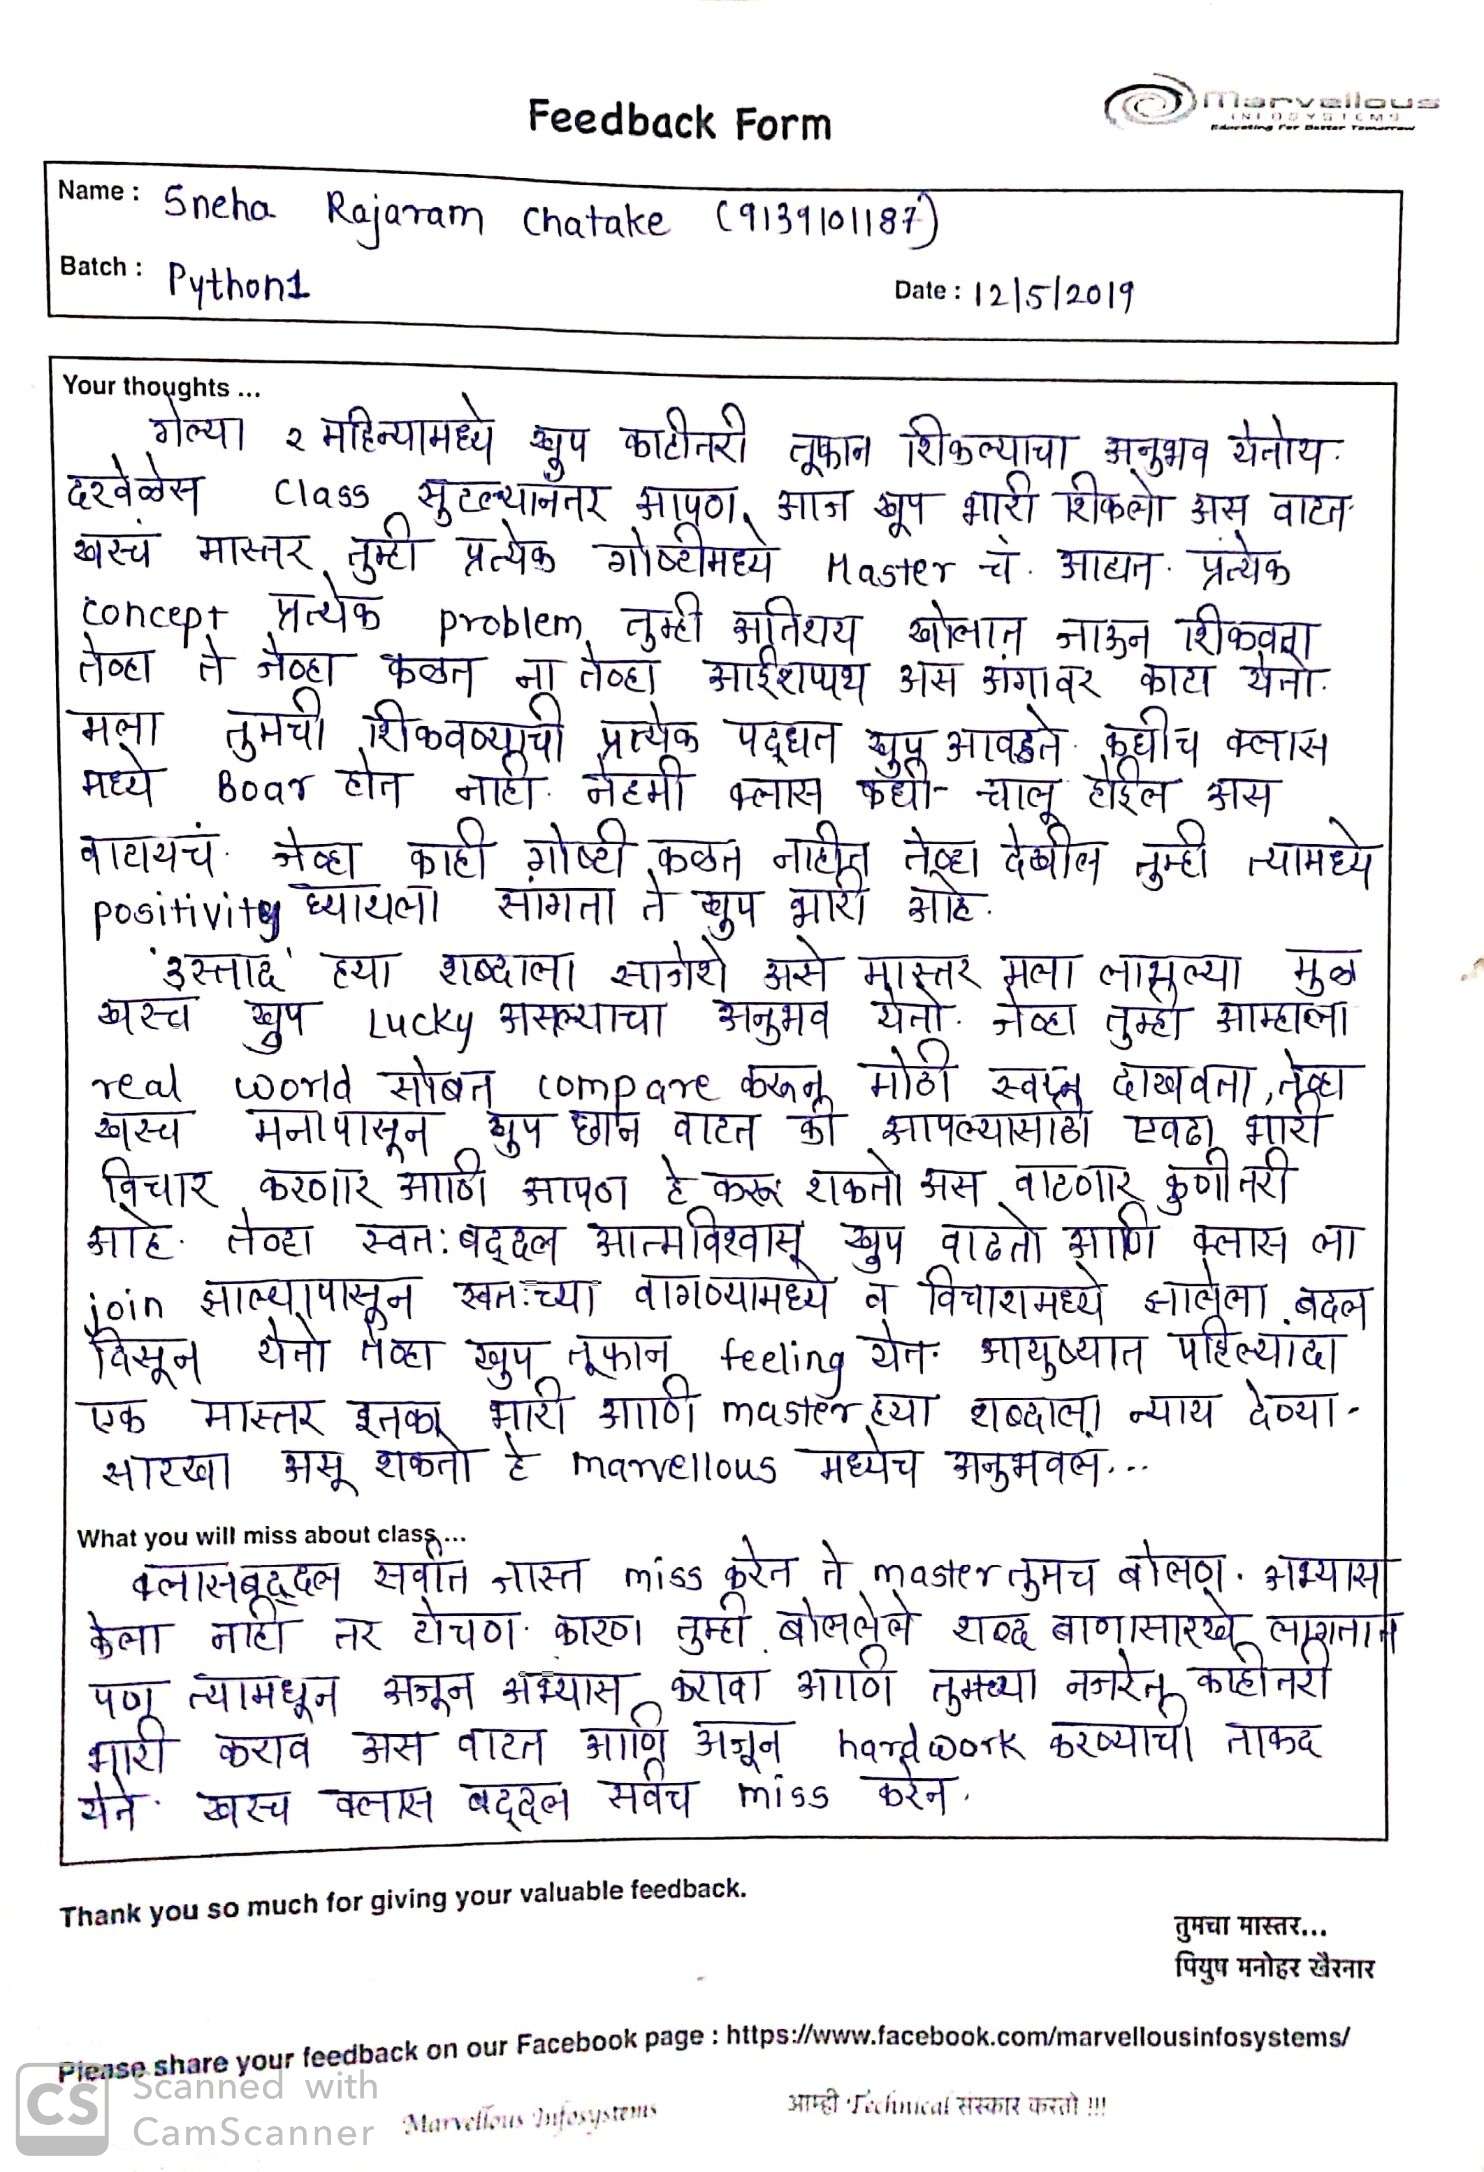 Feedback Form
Marvellous
INFOSYSTEMS
Educating For Better Tomorrow
Name : Sneha Rajaram Chatake (9139101187)
Batch : Python1
Date : 12/5/2019
Your thoughts ...
गेल्या २ महिन्यामध्ये खुप काहीतरी तूफान शिकल्याचा अनुभव येतोय.
दरवेळेस Class सुटल्यानंतर आपण आज खूप भारी शिकलो अस वाटत.
खरचं मास्तर तुम्ही प्रत्येक गोष्टीमध्ये Master चं. आहात. प्रत्येक
concept प्रत्येक problem तुम्ही अतिशय खोलात जाऊन शिकवता
तेव्हा ते जेव्हा कळत ना तेव्हा आईशप्पथ अस अंगावर काटा येतो.
मला तुमची शिकवण्याची प्रत्येक पद्धत खुप आवडते. कधीच क्लास
मध्ये Boar होत नाही. नेहमी क्लास कधी चालू होईल अस
वाटायचं. जेव्हा काही गोष्टी कळत नाहीत तेव्हा देखील तुम्ही त्यामध्ये
positivity घ्यायला सांगता ते खुप भारी आहे.
'उस्ताद' हया शब्दाला साजेशे असे मास्तर मला लाभल्या मुळ
खरच खुप Lucky असल्याचा अनुभव येतो. जेव्हा तुम्ही आम्हाला
real world सोबत compare करून मोठी स्वप्न दाखवता, तेव्हा
खरच मनापासून खुप छान वाटत की आपल्यासाठी एवढा भारी
विचार करणार आणि आपण हे करू शकतो अस वाटणार कुणीतरी
आहे. तेव्हा स्वत:बद्दल आत्मविश्वास खुप वाढतो आणि क्लास ला
join झाल्यापासून स्वत:च्या वागण्यामध्ये व विचारामध्ये झालेला बदल
दिसून येतो तेव्हा खुप तूफान feeling येत. आयुष्यात पहिल्यांदा
एक मास्तर इतका भारी आणि master हया शब्दाला न्याय देण्या-
सारखा असू शकतो हे marvellous मध्येच अनुभवल...
What you will miss about class ...
क्लासबद्दल सर्वात जास्त miss करेन ते master तुमच बोलण. अभ्यास
केला नाही तर टोचण. कारण तुम्ही बोललेले शब्द बाणासारखे लागतात
पण त्यामधून अजून अभ्यास करावा आणि तुमच्या नजरेत काहीतरी
भारी कराव अस वाटत आणि अजून hardwork करण्याची ताकद
येते. खरच क्लास बद्दल सर्वच miss करेन.
Thank you so much for giving your valuable feedback.
तुमचा मास्तर...
पियुष मनोहर खैरनार
Please share your feedback on our Facebook page : https://www.facebook.com/marvellousinfosystems/
CS Scanned with
CamScanner
Marvellous Infosystems
आम्ही Technical संस्कार करतो !!!